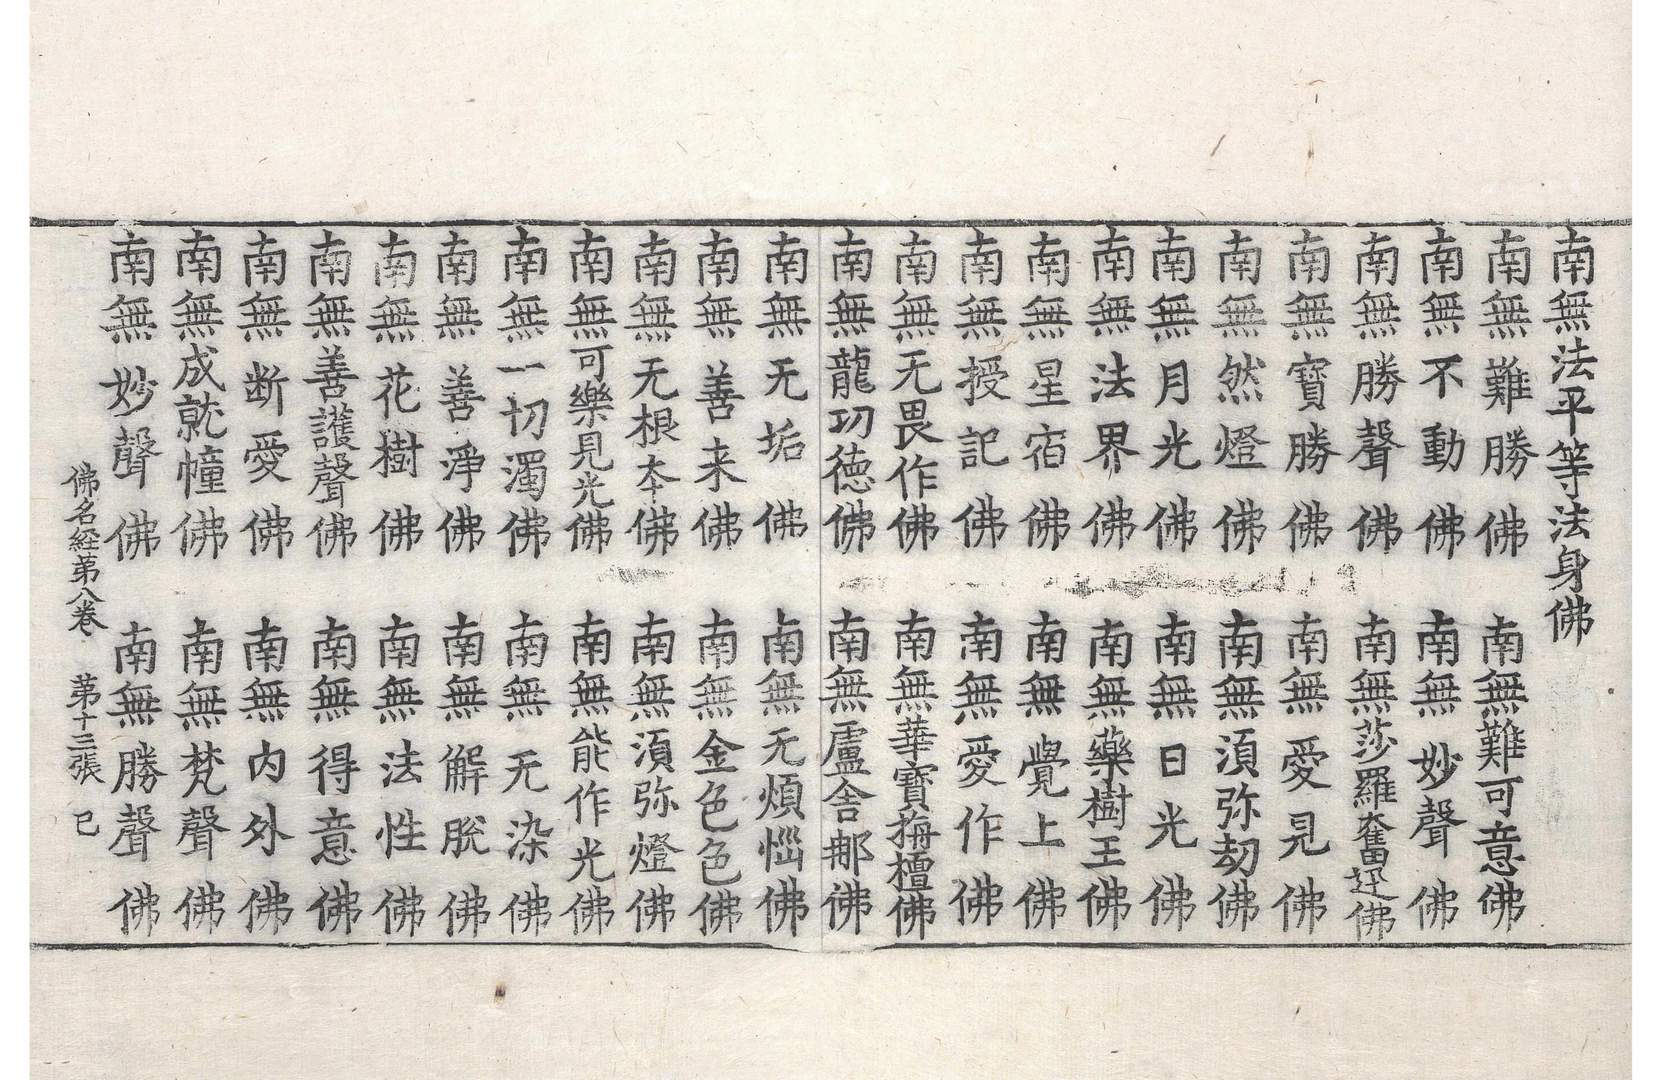 南無法平等法身佛
南無難勝佛　南無難可意佛
南無不動佛　南無妙聲佛
南無勝聲佛　南無莎羅奮迅佛
南無寶勝佛　南無愛見佛
南無然燈佛　南無湏弥劫佛
南無月光佛　南無日光佛
南無法界佛　南無藥樹王佛
南無星宿佛　南無覺上佛
南無授記佛　南無愛作佛
南無无畏作佛　南無華寶栴檀佛
南無龍功德佛　南無盧舍那佛
南無无垢佛　南無无煩惱佛
南無善来佛　南無金色色佛
南無无根本佛　南無湏弥燈佛
南無可樂見光佛　南無能作光佛
南無一切濁佛　南無无染佛
南無善淨佛　南無解脫佛
南無花樹佛　南無法性佛
南無善護聲佛　南無得意佛
南無断愛佛　南無内外佛
南無成就幢佛　南無梵聲佛
南無妙聲佛　南無勝聲佛
佛名経苐八卷　苐十三張　已